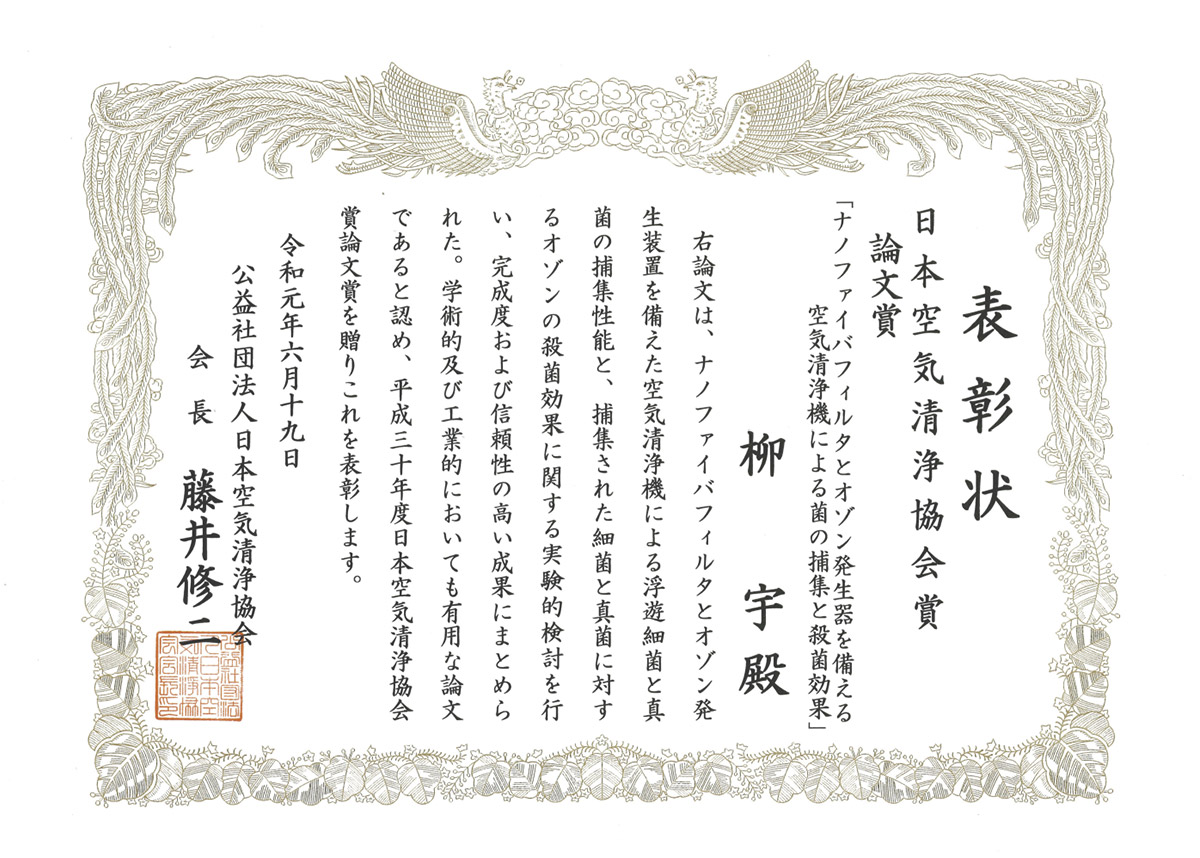 表彰状
日本空気清浄協会賞
論文賞
「ナノファイバフィルタとオゾン発生器を備える
空気清浄機による菌の捕集と殺菌効果」
柳 宇 殿
右論文は、ナノファイバフィルタとオゾン発
生装置を備えた空気清浄機による浮遊細菌と真
菌の捕集性能と、捕集された細菌と真菌に対す
るオゾンの殺菌効果に関する実験的検討を行
い、完成度および信頼性の高い成果にまとめら
れた。学術的及び工業的においても有用な論文
であると認め、平成三十年度日本空気清浄協会
賞論文賞を贈りこれを表彰します。
令和元年六月十九日
公益社団法人日本空気清浄協会
会長 藤井修二